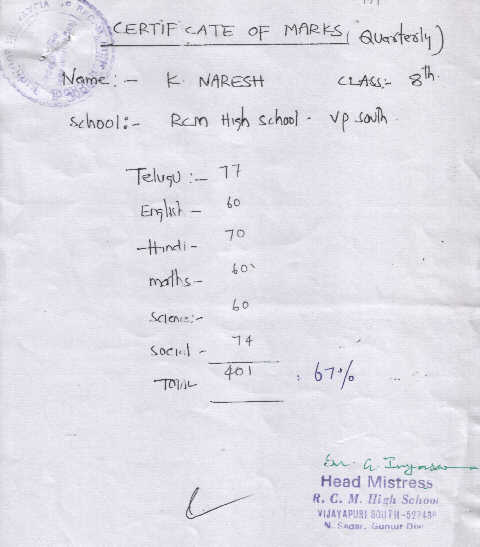 CERTIFICATE OF MARKS (Quarterly)
Name:- K. NARESH CLASS:- 8th.
School:- RCM High School. VP South.
Telugu:- 77
English - 60
Hindi - 70
maths - 60
Science:- 60
Social - 74
TOTAL 401 : 67%
Head Mistress
R. C. M. High School
VIJAYAPURI SOUTH-
N. Sagar, Guntur